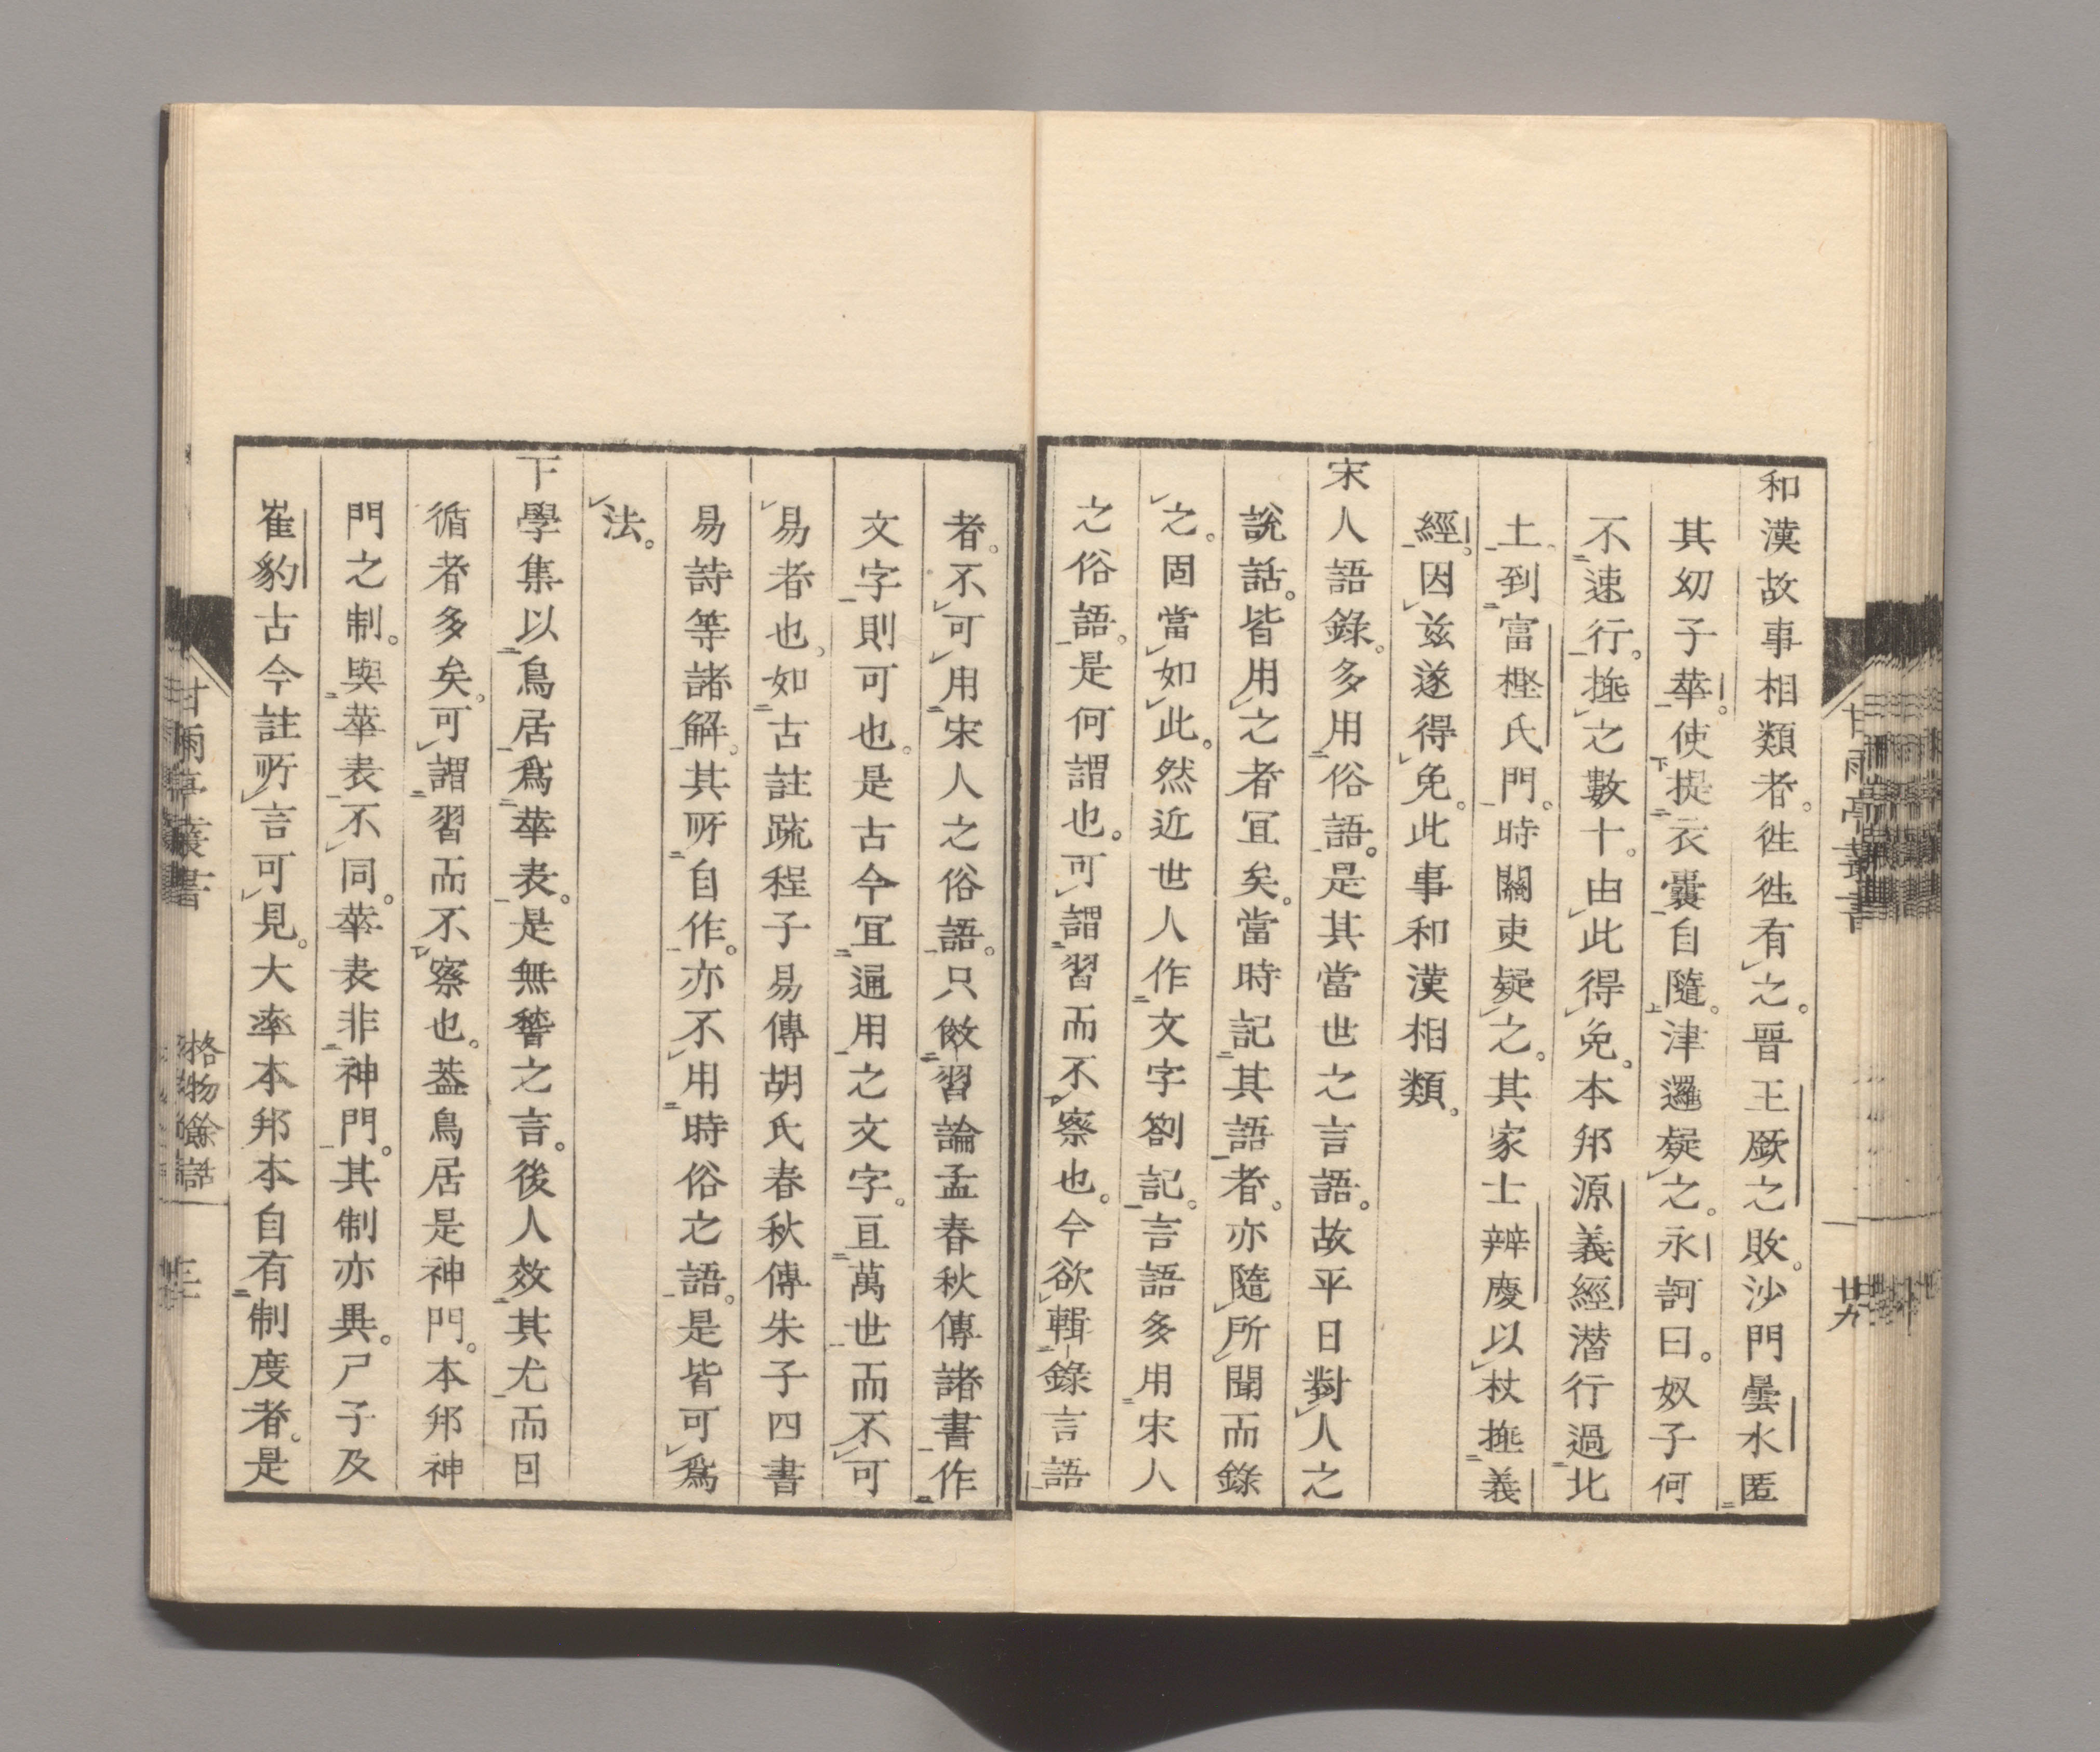 和漢故事相類者。徃徃有之。晉王厥之敗。沙門曇水匿
其幼子華。使提衣囊自隨。津邏疑之。永訶曰。奴子何
不速行。捶之數十。由此得免。本邦源義經潜行過北
土。到富樫氏門。時關吏疑之。其家士辨慶以杖捶義
經。因兹遂得免。此事和漢相類。
宋人語錄。多用俗語。是其當世之言語。故平日對人之
說話。皆用之者宜矣。當時記其語者。亦隨所聞而錄
之。固當如此。然近世人作文字劄記。言語多用宋人
之俗語。是何謂也。可謂習而不察也。今欲輯錄言語
者。不可用宋人之俗語。只傚習論孟春秋傳諸書作
文字則可也。是古今宜通用之文字。亘萬世而不可
易者也。如古註疏程子易傳胡氏春秋傳朱子四書
易詩等諸解。其所自作。亦不用時俗之語。是皆可爲
法。
下學集以鳥居爲華表。是無稽之言。後人效其尤而因
循者多矣。可謂習而不察也。葢鳥居是神門。本邦神
門之制。與華表不同。華表非神門。其制亦異。尸子及
崔豹古今註所言可見。大率本邦本自有制度者。是
甘雨亭叢書
廿九
甘雨亭叢書
格物餘話